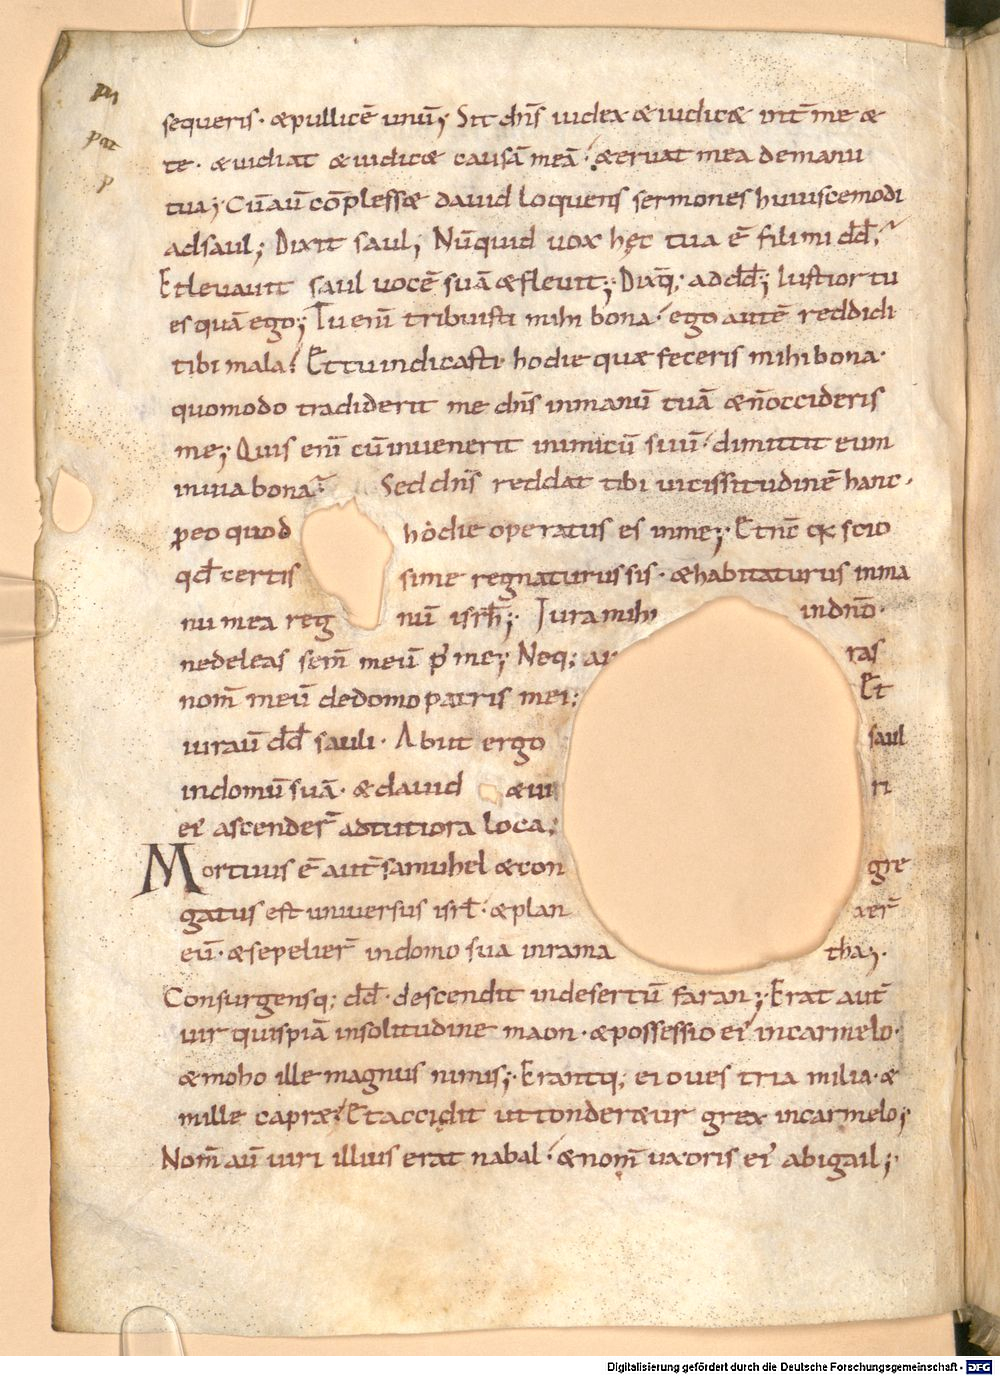 sequeris · & pullicē unū; Sit dn̄s iudex & iudic& int̄ me &
te · & uidiat & iudic& causā meā · & eruat mea demanu
tua; Cū aū cōpless& dauid loquens sermones huiuscemodi
adsaul; Dixit saul; Nūquid uox hęc tua ē fili mi dd̄;
Et leuauit saul uocē suā & fleuit; Dixq; ad dd̄; Iustior tu
es quā ego; Tu enī tribuisti mihi bona · ego autē reddidi
tibi mala; Et tu indicasti hodie quae feceris mihi bona ·
quomodo tradiderit me dn̄s inmanū tuā & n̄ occideris
me; Quis enī cū inuenerit inimicū suū · dimittit eum
inuia bona; Sed dn̄s reddat tibi uicissitudinē hanc ·
ꝑeo quod hodie operatus es inme; Et nc̄ qa scio
qd̄ certis sime regnaturus sis · & habitaturus inma
nu mea reg nū isrh̄l; Iura mihi indnō ·
ne deleas sem̄ meū p̄ me; Neq; au ras
nom̄ meū dedomo patris mei; Et
iurauī dd̄ sauli · Abiit ergo saul
indomū suā · & dauid & ui ri
ei' ascender̄ adtutiora loca;
Mortuus ē aut̄ samuhel & con gre
gatus est uniuersus isrl̄ · & plan xer̄
eū · & sepelier̄ indomo sua inrama tha; ·
Consurgensq; dd̄ · descendit indesertū faran; Erat aut̄
uir quispiā insolitudine maon · & possessio ei' incarmelo ·
& moho ille magnus nimis; Erantq; ei oues tria milia · &
mille caprae; Et accidit ut tonder&ur grex incarmelo;
Nom̄ aū uiri illius erat nabal · & nom̄ uxoris ei' abigail;
Digitalisierung gefördert durch die Deutsche Forschungsgemeinschaft - DFG